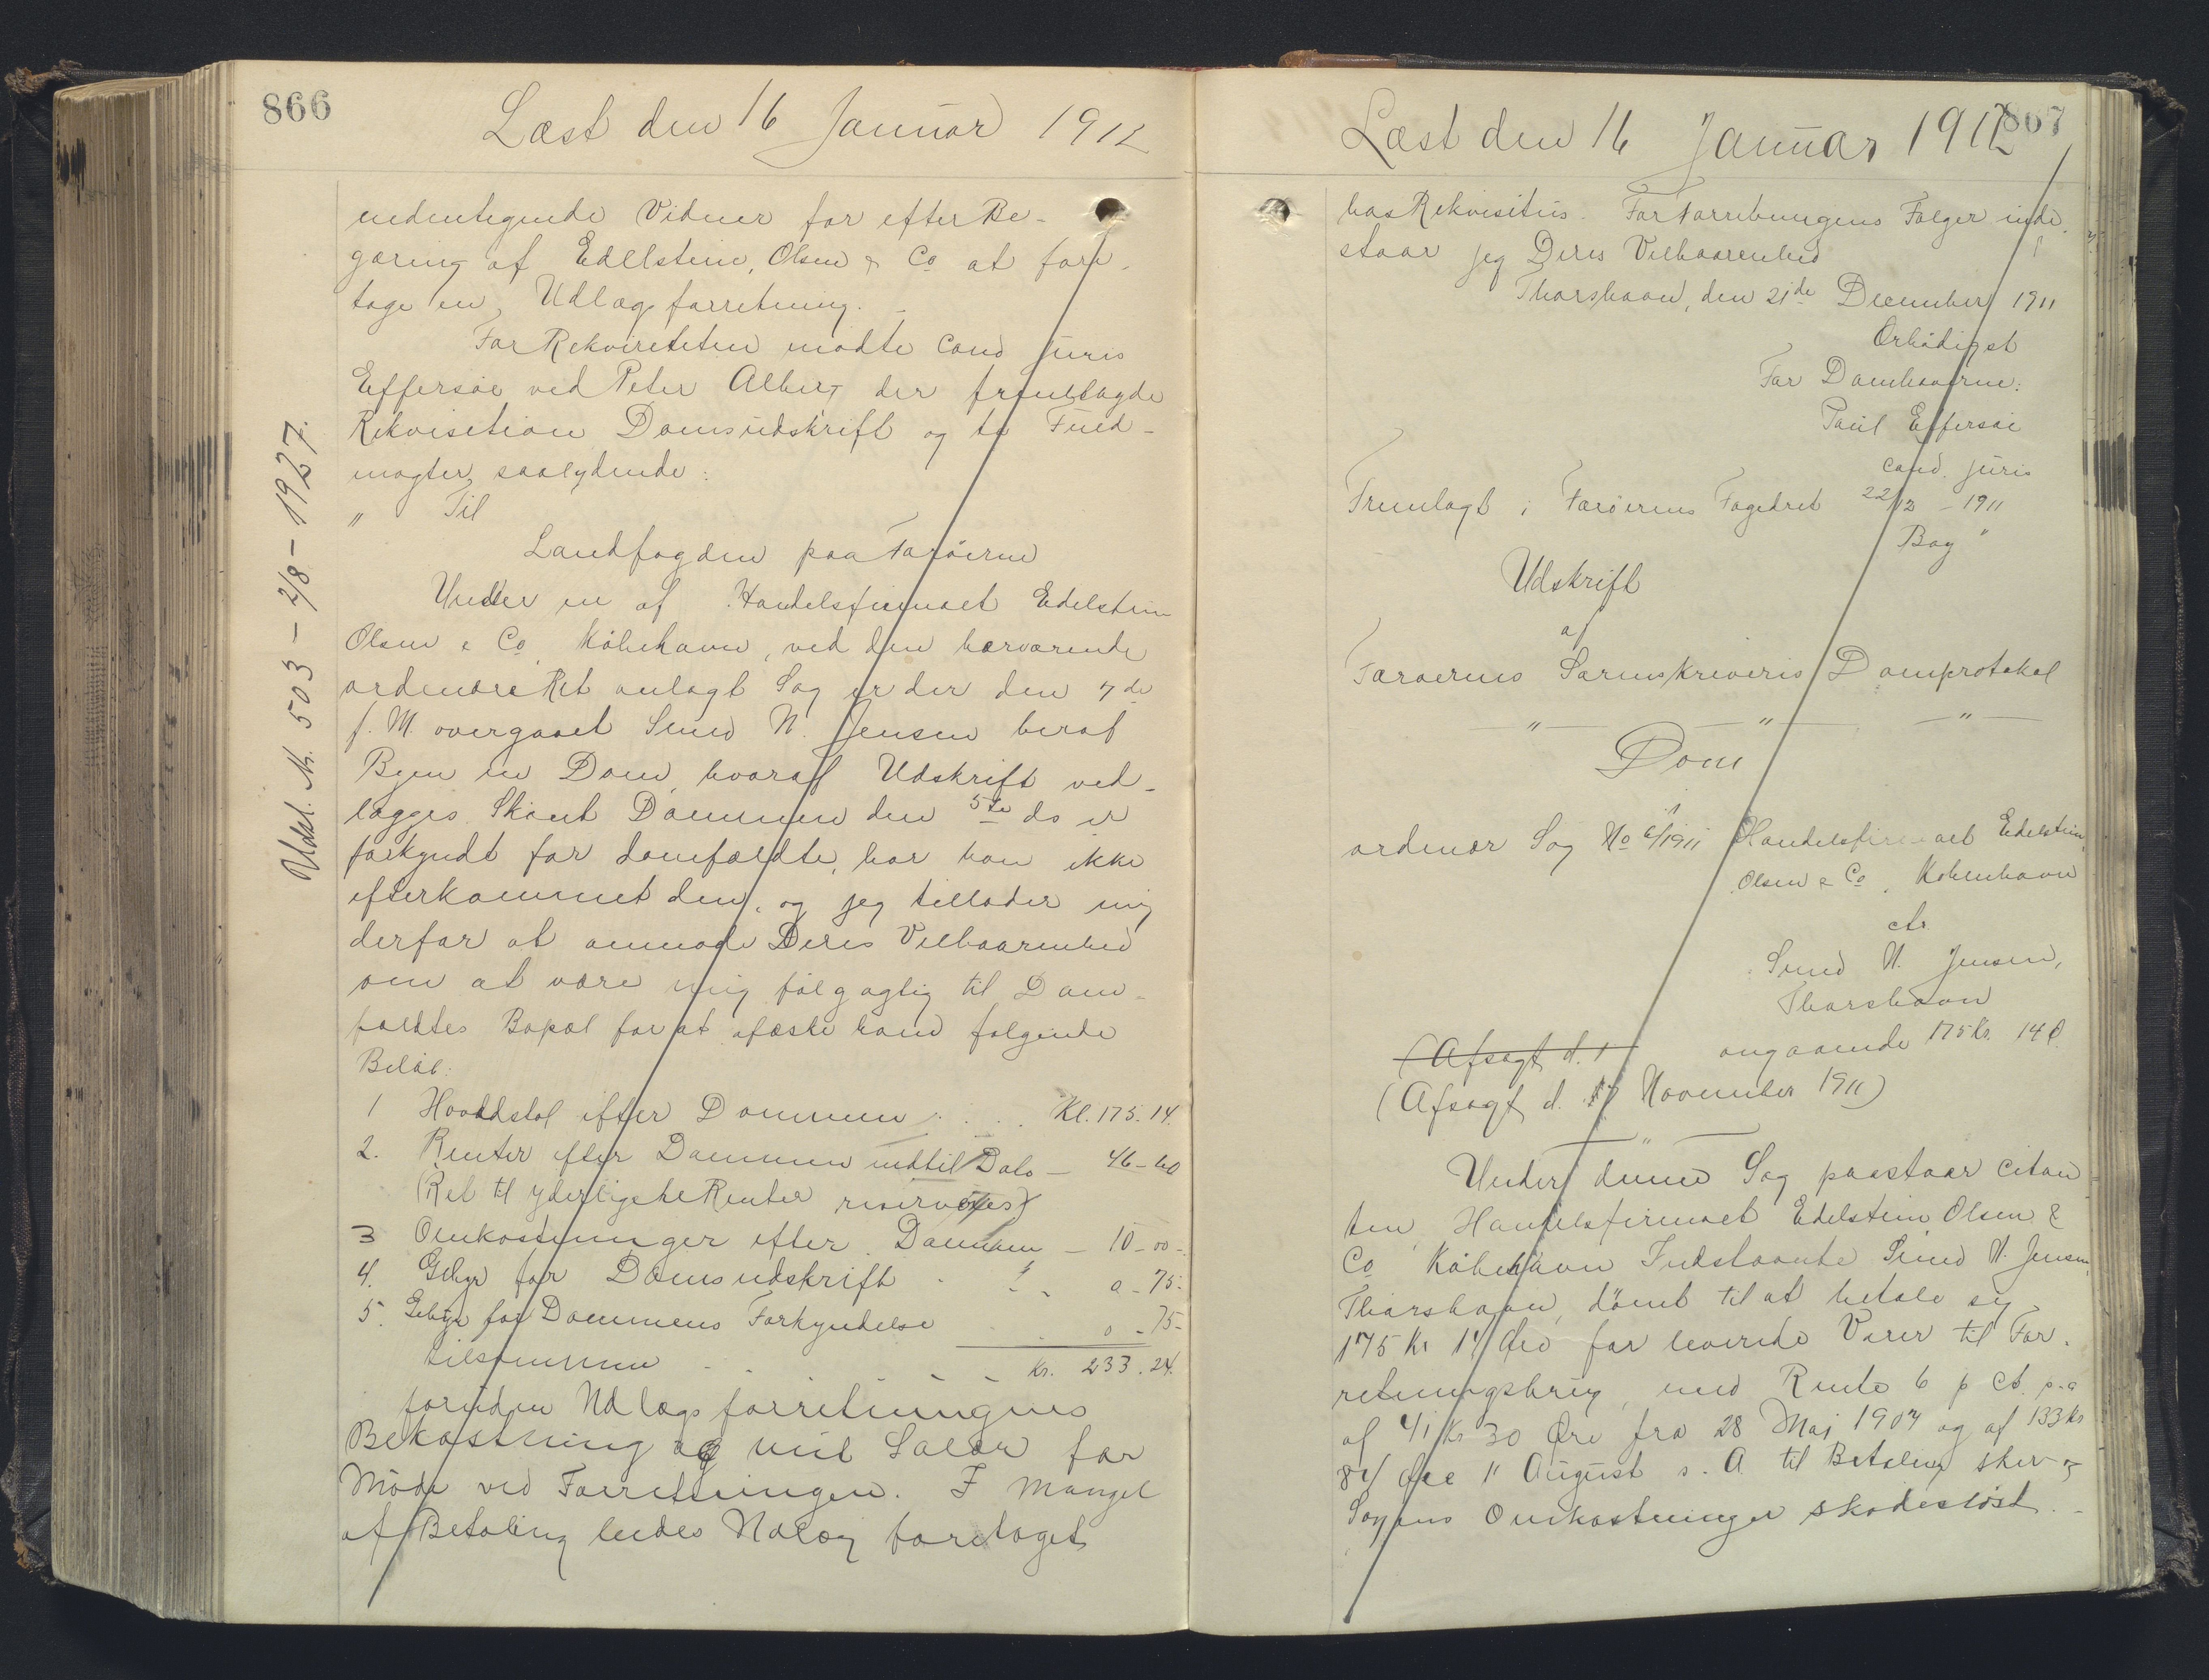 866
Læst den 16 Januar 1912
undertegnede Vidner for efter Be-
gæring af Edelstein, Olsen & Co at fore-
tage en Udlægsforretning.
For Rekvirenten mødte cand juris
Effersøe ved Peter Alberg der fremlagde
Rekvisition Domsudskrift og to Fuld-
magter saalydende:
" Til
Landfogden paa Færøerne
Under en af Handelsfirmaet Edelstein
Olsen & Co, Købehavn, ved den herværende
ordenære Ret anlagt Sag er der den 7de
f. M. overgaaet Smed N. Jensen heraf
Byen en Dom, hvoraf Udskrift ved-
lægges. Skønt Dommen den 5te ds er
forkyndt for domfældte, har han ikke
efterkommet den, og jeg tillader mig
derfor at anmode Deres Velbaarenhed
om at være mig følgagtig til Dom-
fældtes Bopæl for at afæske ham følgende
Beløb:
1 Hovedstol efter Dommen . . . Kr. 175.14.
2. Renter efter Dommen indtil Dato — 46-60
(Ret til yderligere Renter reserveres)
3 Omkostninger efter Dommen — 10-00-
4. Gebyr for Domsudskrift - - - 0-75-
5. Gebyr for Dommens Forkyndelse - 0-75-
tilsammen - - - Kr. 233.24.
foruden Udlægsforretningens
Bekostning og mit Salær for
Møde ved Forretningen. I Mangel
af Betaling bedes Udlæg foretaget
Udsl. Nr. 503 - 2/8 - 1927.
867
Læst den 16 Januar 1912
hos Rekvisitus. For Forretningens Følger inde-
staar jeg Deres Velbaarenhed
Thorshavn, den 21de December 1911
Ærbødigst
For Domhaverne:
Poul Effersøe
cand. juris
Fremlagt i Færøernes Fogedret 22/12 - 1911
Bag "
Udskrift
af
Færøernes Sorenskriveris Domprotokol
" " "
Dom
i
ordenær Sag No 6/1911 Handelsfirmaet Edelstein,
Olsen & Co, København
ctr.
Smed N. Jensen,
Thorshavn
angaaende 175 Kr. 14 Ø.
(Afsagt d. 1
(Afsagt d. 17 November 1911)
"
Under denne Sag paastaar Citan
ten, Handelsfirmaet Edelstein Olsen &
Co København Indstævnte Smed N. Jensen,
Thorshavn, dømt til at betale sig
175 Kr 14 Øre for leverede Varer til For-
retningsbrug, med Rente 6 p Ct. p-a
af 41 Kr 30 Øre fra 28 Maj 1907 og af 133 Kr
84 Øre 11 August s. A til Betaling sker og
Sagens Omkostninger skadesløst. -